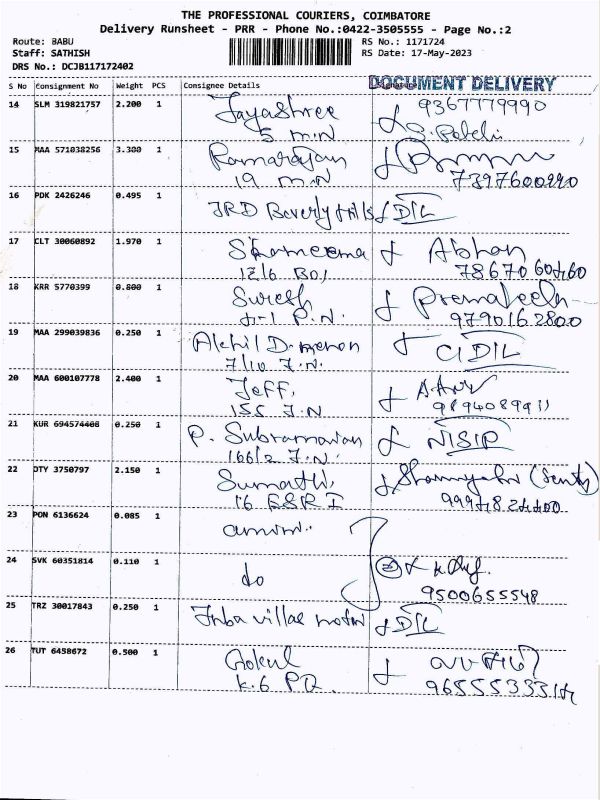 THE PROFESSIONAL COURIERS, COIMBATORE
Delivery Runsheet - PRR - Phone No.:0422-3505555 - Page No.:2
Route: BABU
Staff: SATHISH
DRS No.: DCJB117172402
RS No.: 1171724
RS Date: 17-May-2023
S No Consignment No Weight PCS Consignee Details
DOCUMENT DELIVERY
14 SLM 319821757 2.200 1 Jayashree 9367779990
5 m.N
15 MAA 571038256 3.300 1 Ramarajan
19 m.N 7397600990
16 PDK 2426246 0.495 1 JRD Beverly Hills DIL
17 CLT 30060892 1.970 1 Shameema
12/6
18 KRR 5770399 0.800 1 Suresh
P.N. 9790162800
19 MAA 299039836 0.250 1 Akhil D. menon
7/10 7.N
20 MAA 600107778 2.400 1 Jeff,
155 7.N
21 KUR 694574408 0.250 1 P. Subramanian
166/2 7.N.
22 OTY 3750797 2.150 1 Sumathi,
16 ESR I
23 PON 6136624 0.085 1
24 SVK 60351814 0.110 1 do
9500655548
25 TRZ 30017843 0.250 1 Inba villae DIL
26 TUT 6458672 0.500 1 Gokul
K.6